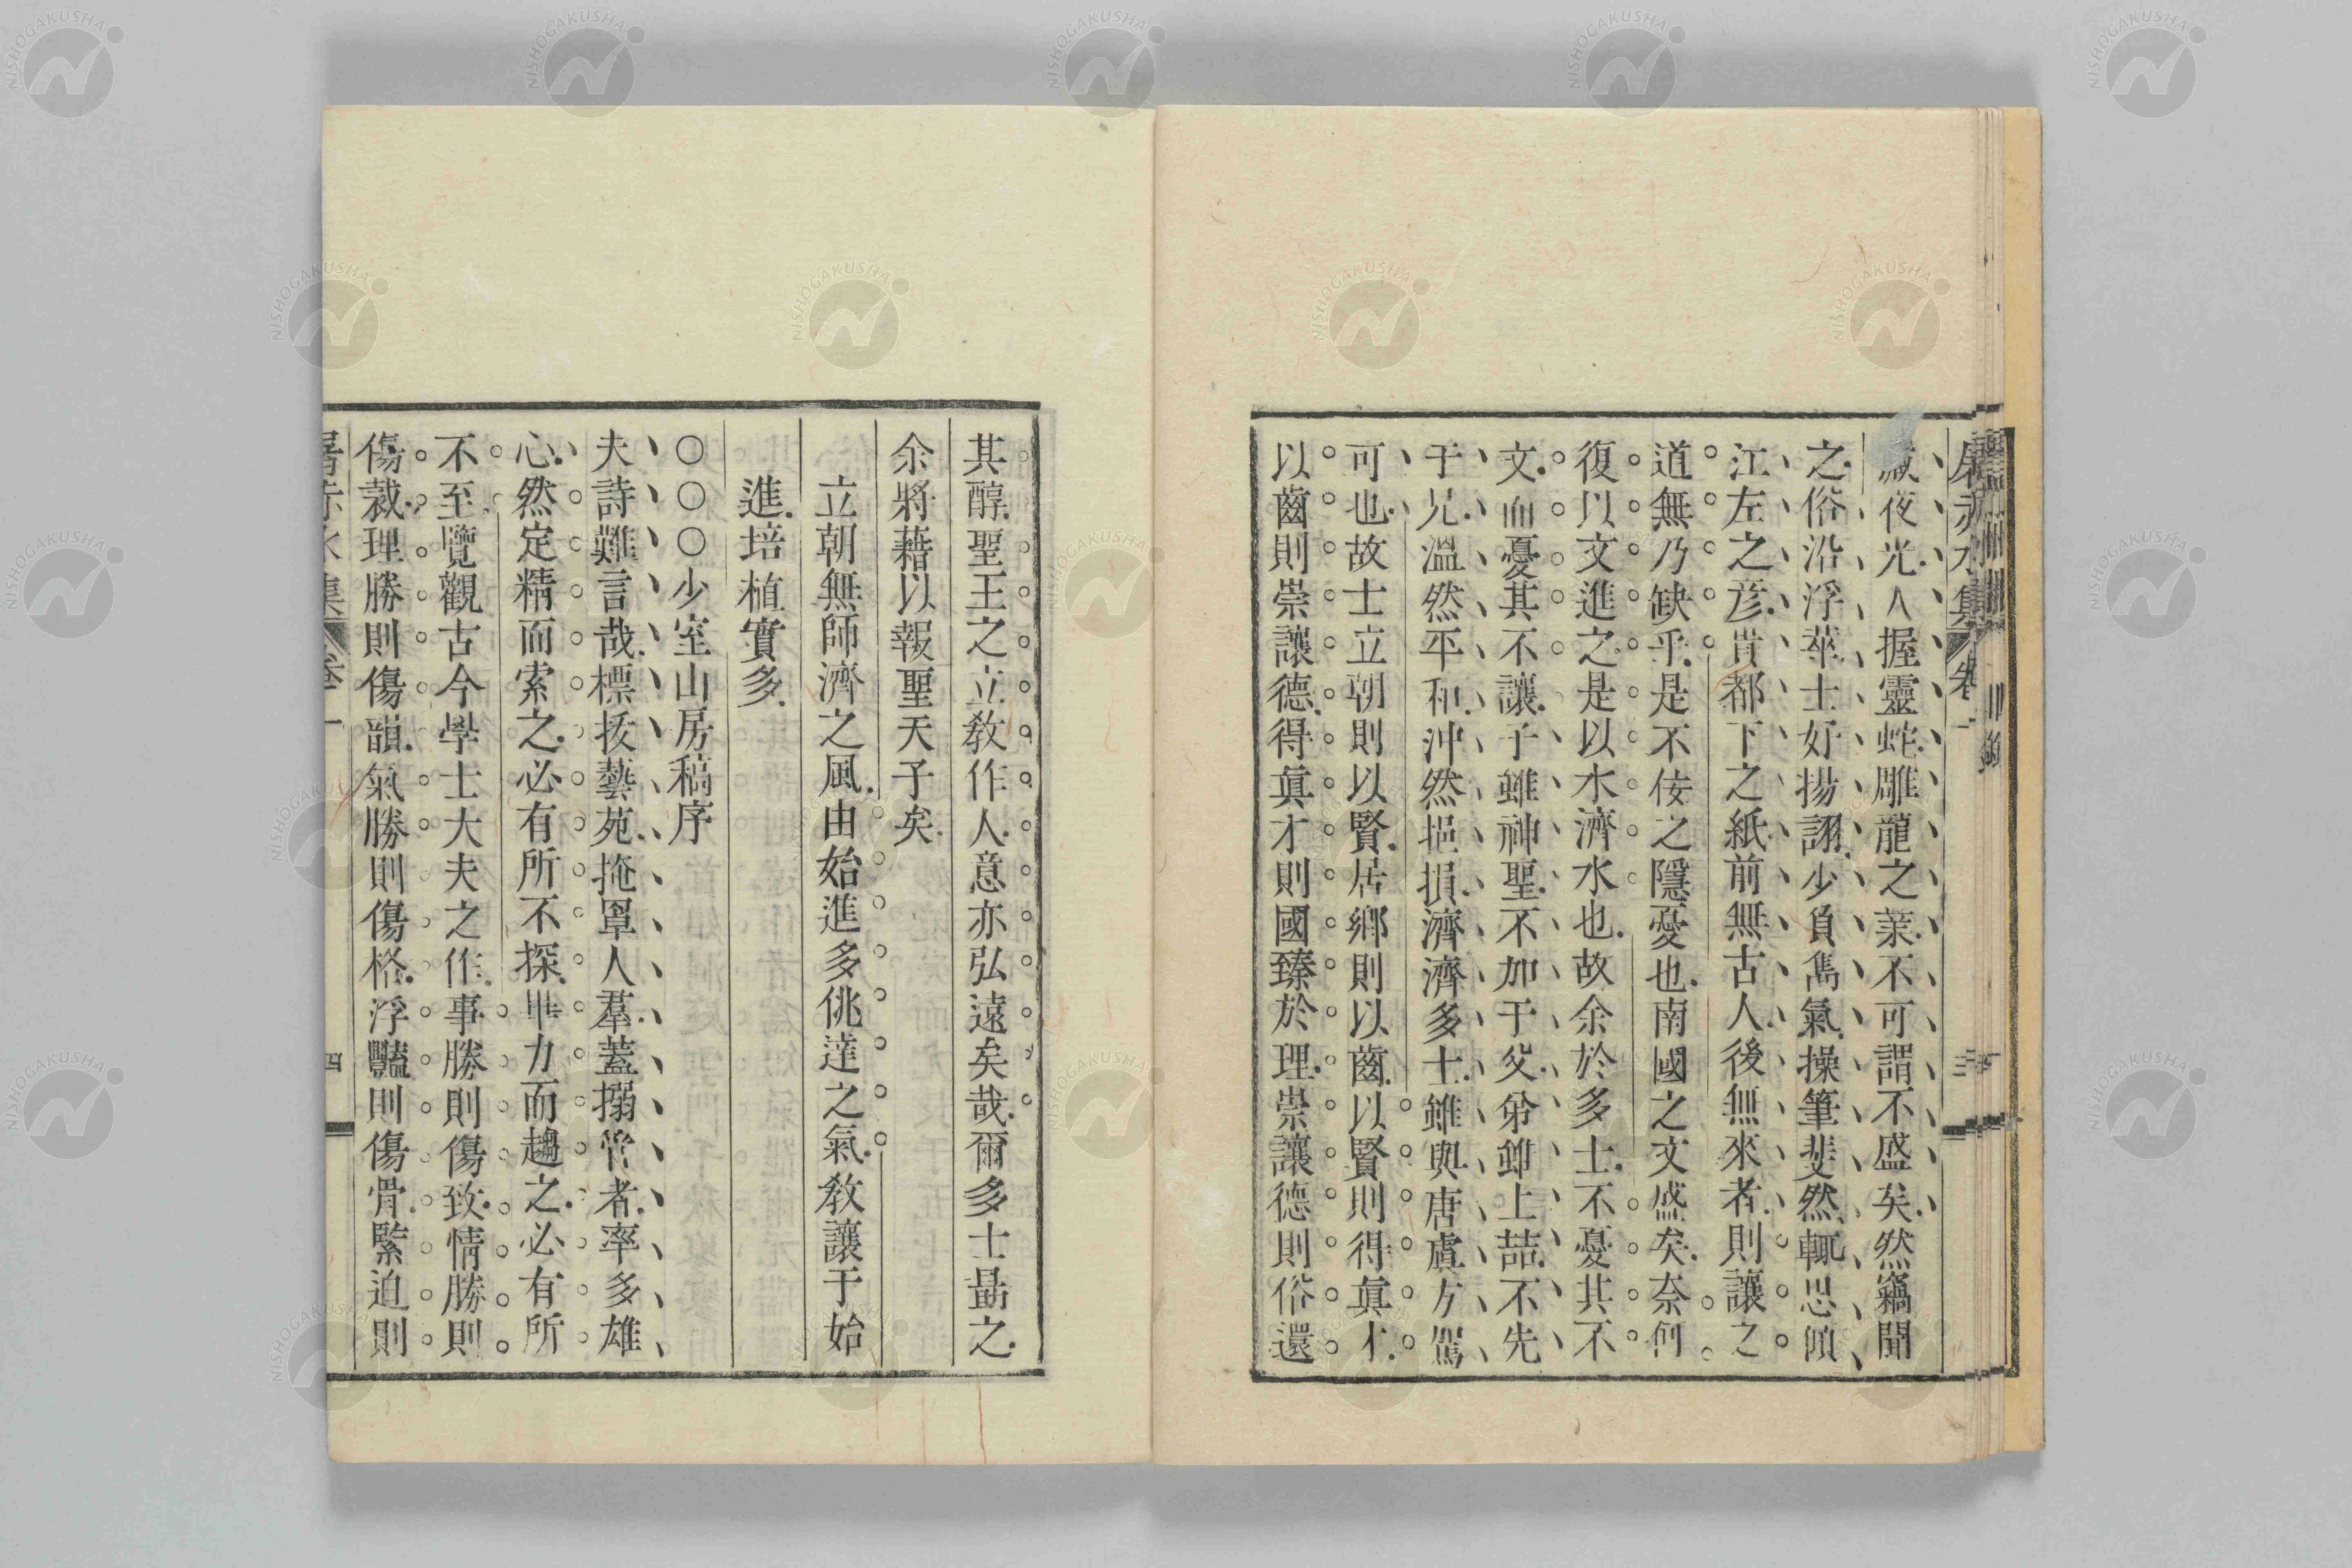 屠赤水集 卷一
藏夜光人握靈蛇雕龍之業不可謂不盛矣然竊聞
之俗沿浮華士好揚詡少負雋氣操筆斐然輒思傾
江左之彥貴都下之紙前無古人後無來者則讓之
道無乃缺乎是不佞之隱憂也南國之文盛矣奈何
復以文進之是以水濟水也故余於多士不憂其不
文而憂其不讓子雖神聖不加于父弟雖上喆不先
于兄溫然平和沖然挹損濟濟多士雖與唐虞方駕
可也故士立朝則以賢居鄉則以齒以賢則得真才
以齒則崇讓德得真才則國臻於理崇讓德則俗還
其醇聖王之立教作人意亦弘遠矣哉爾多士勗之
余將藉以報聖天子矣
立朝無師濟之風由始進多佻達之氣教讓于始
進培植實多
○○○少室山房稿序
夫詩難言哉標拔藝苑掩罩人羣蓋搦管者率多雄
心然定精而索之必有所不探畢力而趨之必有所
不至覽觀古今學士大夫之作事勝則傷致情勝則
傷裁理勝則傷韻氣勝則傷格浮豔則傷骨緊迫則
屠赤水集 卷一 四
NISHOGAKUSHA